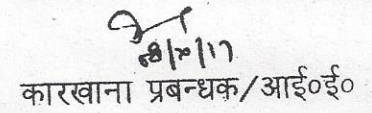 कारखाना प्रबन्धक/आई०ई०